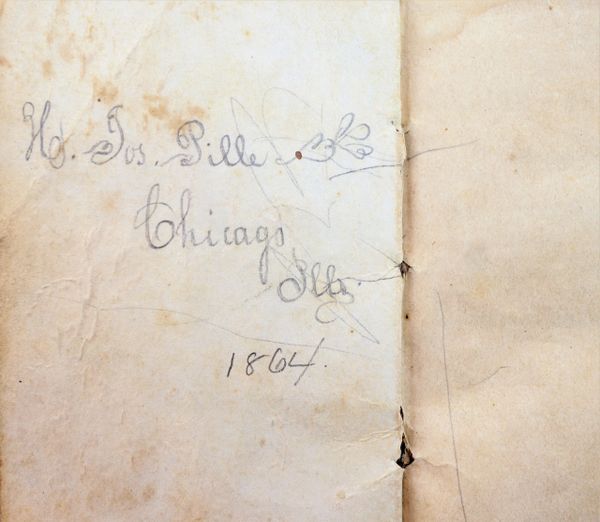 H. Jos. Pille
Chicago
Ills.
1864.